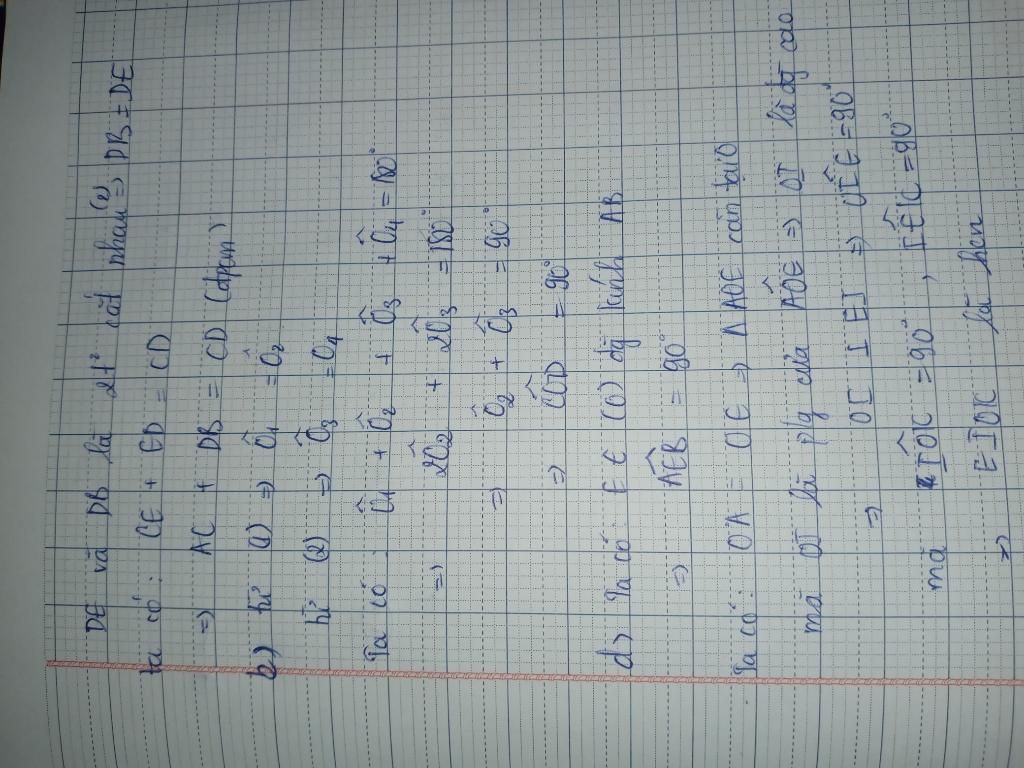 DE và DB là 2t² cắt nhau (2) => DB = DE
ta có: CE + ED = CD
=> AC + DB = CD (đpcm)
b) từ (1) => Ô1 = Ô2
từ (2) => Ô3 = Ô4
Ta có: Ô1 + Ô2 + Ô3 + Ô4 = 180°
=> 2Ô2 + 2Ô3 = 180°
=> Ô2 + Ô3 = 90°
=> CÔD = 90°
d) Ta có: E ∈ (O) đg kính AB
=> AÊB = 90°
Ta có: OA = OE => Δ AOE cân tại O
mà OI là p/g của AÔE => OI là đg cao
=> OI ⊥ EI => OÎE = 90°
mà IÔK = 90°, IÊK = 90°
=> EIOK là hcn